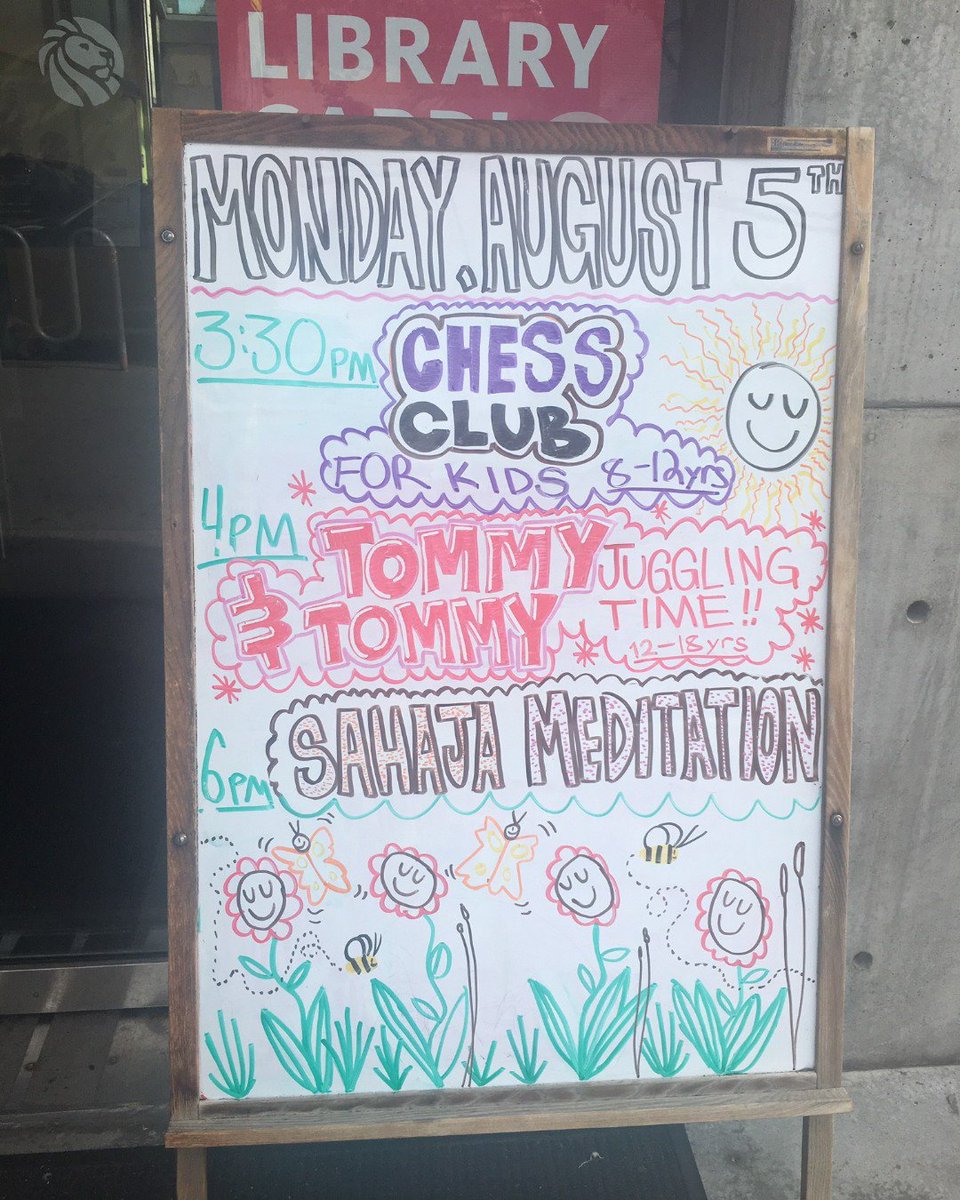 LIBRARY
MONDAY, AUGUST 5TH
3:30PM
CHESS
CLUB
FOR KIDS 8-12yrs
4PM
TOMMY
& TOMMY
JUGGLING
TIME!!
12-18yrs
6PM
SAHAJA MEDITATION